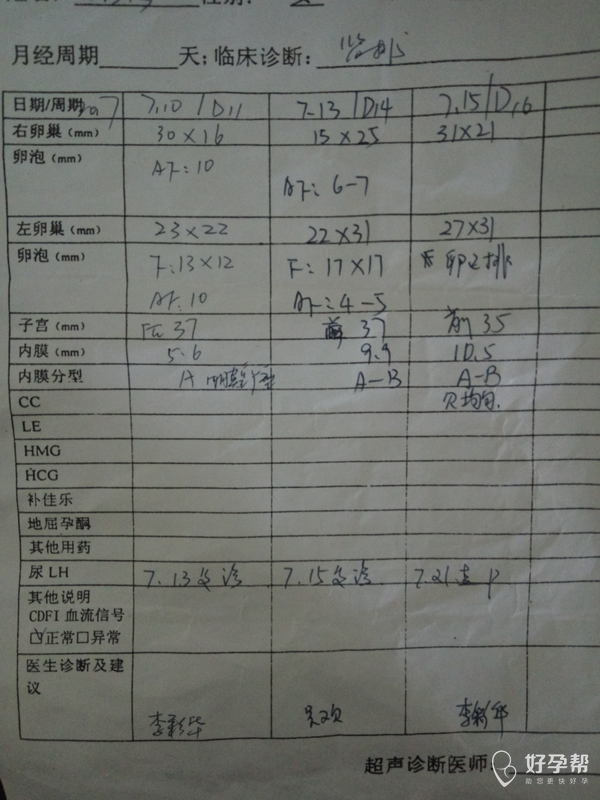 月经周期 天;临床诊断: 监排
日期/周期 7.10/D11 7.13/D14 7.15/D16
右卵巢(mm) 30×16 15×25 31×21
卵泡(mm) AF:10 AF:6-7
左卵巢(mm) 23×22 22×31 27×31
卵泡(mm) F:13×12 F:17×17 卵已排
AF:10 AF:4-5
子宫(mm) 37 前 37 前 35
内膜(mm) 5.6 9.9 10.5
内膜分型 A A-B A-B
CC 欠均匀.
LE
HMG
HCG
补佳乐
地屈孕酮
其他用药
尿LH 7.13复诊 7.15复诊 7.21查P
其他说明
CDFI血流信号
☑正常□异常
医生诊断及建
议
李彩华 李彩华
超声诊断医师:
好孕帮
助您更快好孕